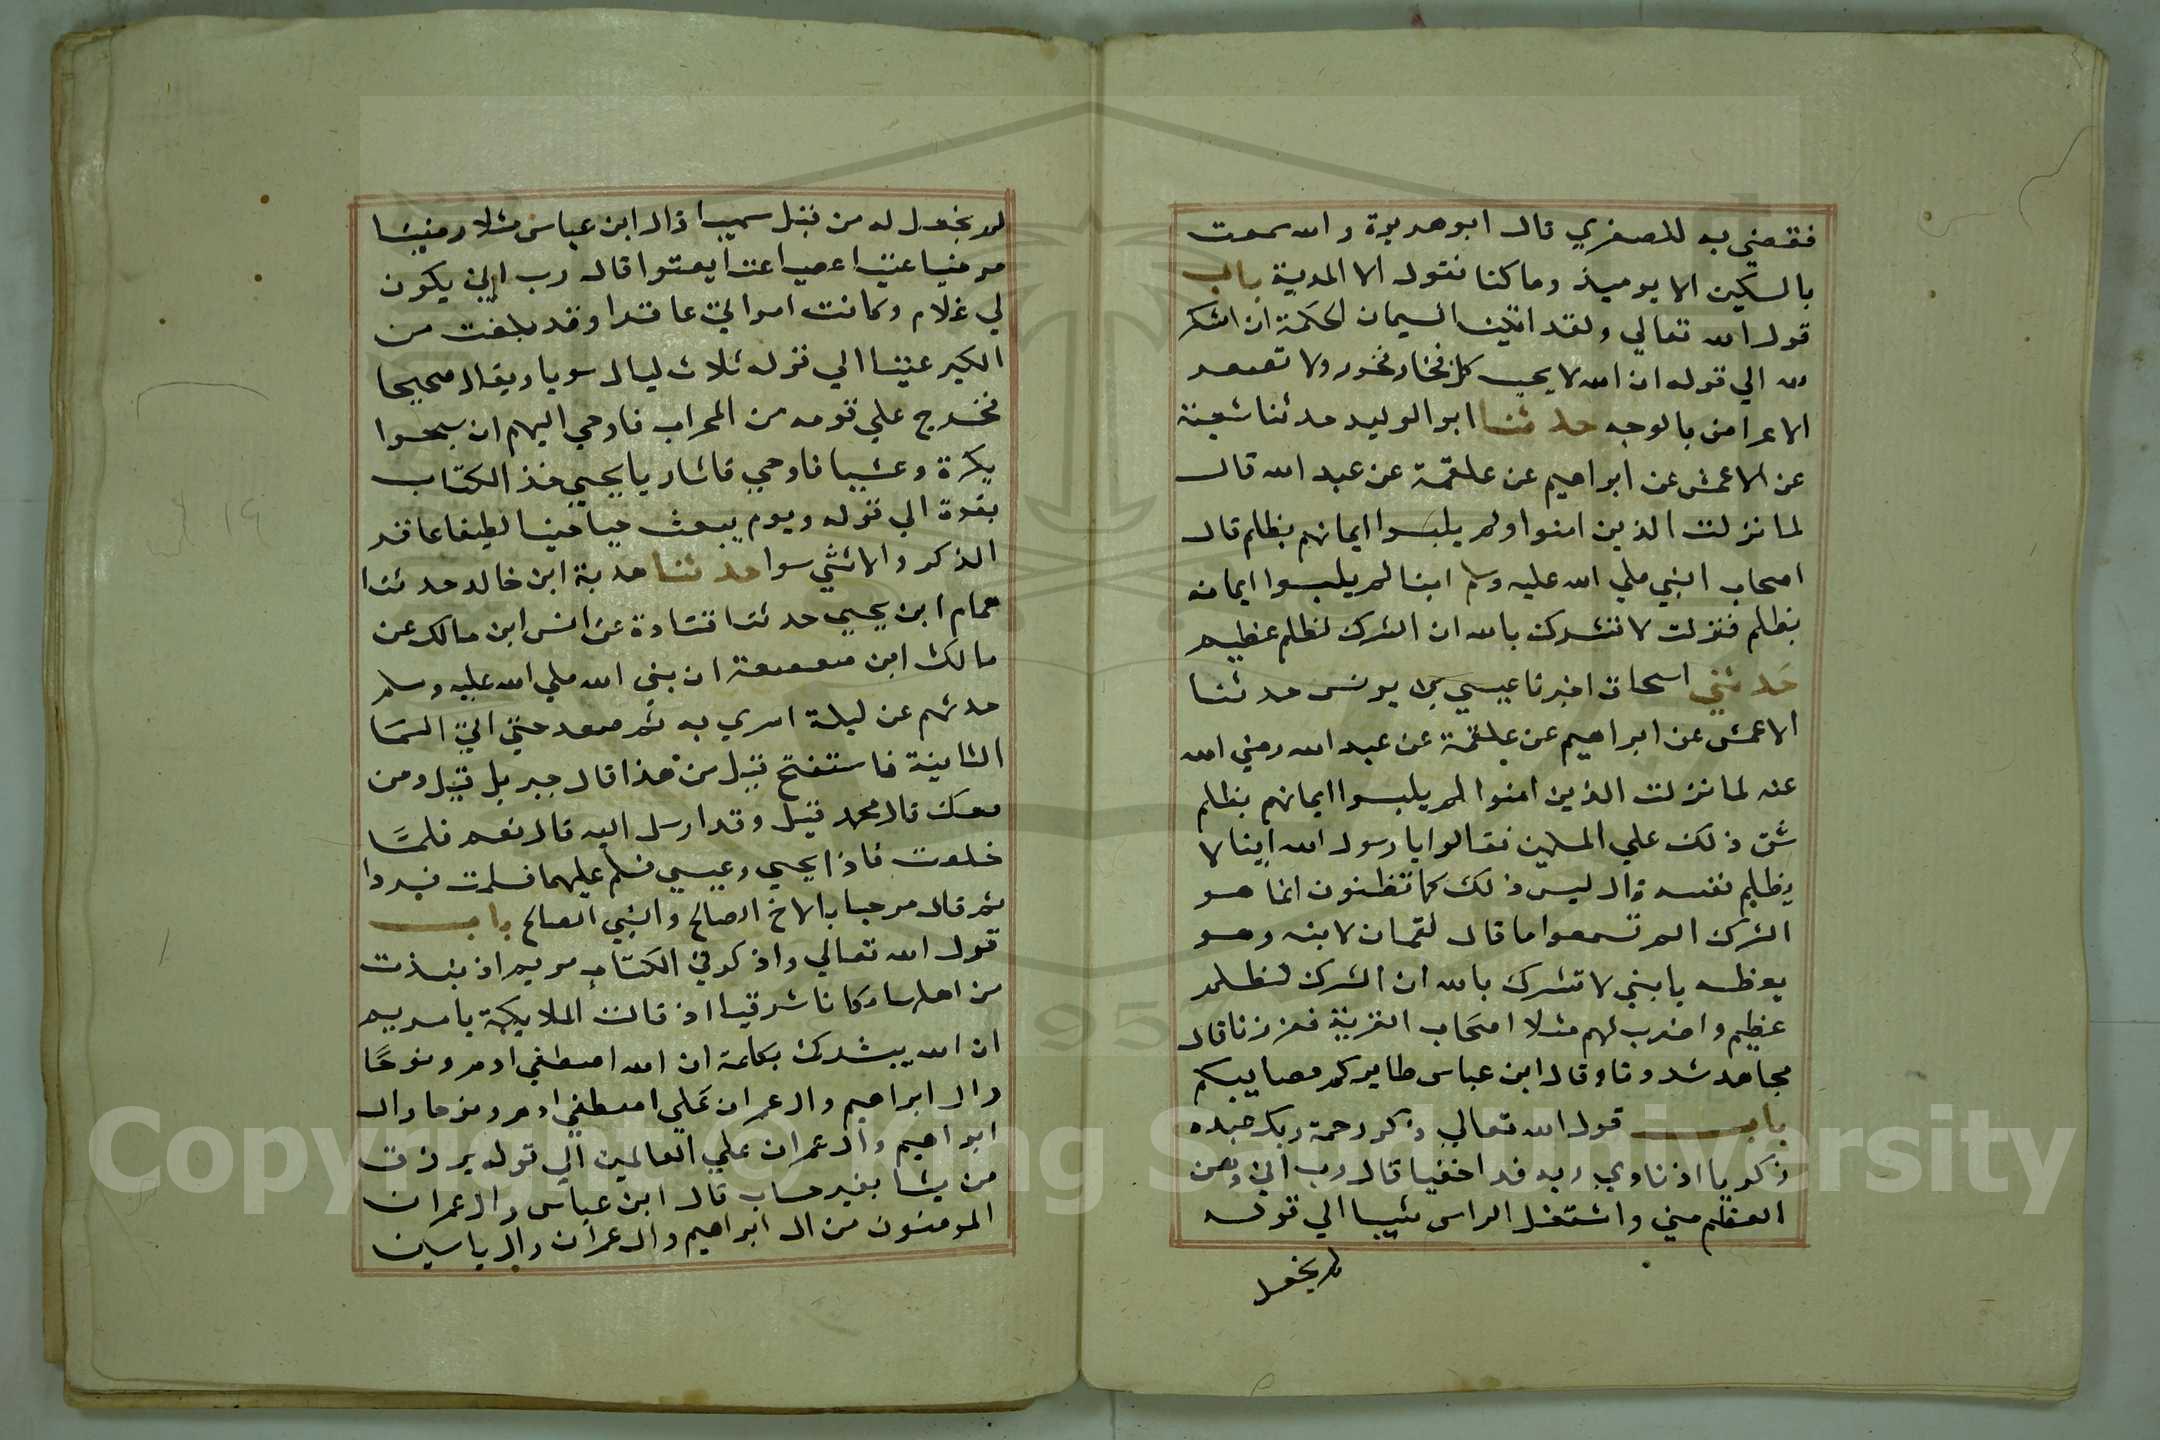 فقضي به للصغري قال ابو هريرة والله سمعت
بالسكين الا يوميذ وما كنا نقول الا المدية باب
قول الله تعالي ولقد اتينا لسيمان الحكمة ان اشكر
لله الي قوله ان الله لا يحب كل مختار فخور ولا تصعر
الاعراض بالوجه حدثنا ابو الوليد حدثنا شعبة
عن الاعمش عن ابراهيم عن علقمة عن عبد الله قال
لما نزلت الذين امنوا ولم يلبسوا ايمانهم بظلم قال
اصحاب النبي صلي الله عليه وسلم اينا لم يلبسوا ايمانه
بظلم فنزلت لا تشرك بالله ان الشرك لظلم عظيم
حدثني اسحاق اخبرنا عيسي بن يونس حدثنا
الاعمش عن ابراهيم عن علقمة عن عبد الله رضي الله
عنه لما نزلت الذين امنوا لم يلبسوا ايمانهم بظلم
شق ذلك علي المسلمين فقالوا يا رسول الله اينا لا
يظلم نفسه قال ليس ذلك كما تظنون انما هو
الشرك الم تسمعوا ما قال لقمان لابنه وهو
يعظه يا بني لا تشرك بالله ان الشرك لظلم
عظيم واضرب لهم مثلا اصحاب القرية فعززنا قال
مجاهد شددنا وقال ابن عباس طايركم مصايبكم
باب قول الله تعالي ذكر رحمة ربك عبده
زكريا اذ نادي ربه ندا خفيا قال رب اني وهن
العظم مني واشتعل الراس شيبا الي قوله
لم نجعل
لم نجعل له من قبل سميا قال ابن عباس مثلا رضيا
مرضيا عتيا عصيا عتا يعتوا قال رب اني يكون
لي غلام وكانت امراتي عاقرا وقد بلغت من
الكبر عتيا الي قوله ثلاث ليال سويا ويقال صحيحا
فخرج علي قومه من المحراب فاوحي اليهم ان سبحوا
بكرة وعشيا فاوحي فاشار يا يحيي خذ الكتاب
بقوة الي قوله ويوم يبعث حيا حفيا لطيفا عاقر
الذكر والانثي سوا حدثنا هدبة ابن خالد حدثنا
همام ابن يحيي حدثنا قتادة عن انس ابن مالك عن
مالك ابن صعصعة ان نبي الله صلي الله عليه وسلم
حدثهم عن ليلة اسري به ثم صعد حتي اتي السما
الثانية فاستفتح قيل من هذا قال جبريل قيل ومن
معك قال محمد قيل وقد ارسل اليه قال نعم فلما
خلصت فاذا يحيي وعيسي فسلم عليهما فسلمت فردا
ثم قال مرحبا بالاخ الصالح والنبي الصالح باب
قول الله تعالي واذكر في الكتاب مريم اذ نبذت
من اهلها مكانا شرقيا اذ قالت الملايكة يا مريم
ان الله يبشرك بكلمة ان الله اصطفي ادم ونوحا
وال ابراهيم وال عمران علي اصطفي ادم ونوحا وال
ابراهيم وال عمران علي العالمين الي قوله يرزق
من يشا بغير حساب قال ابن عباس وال عمران
المومنون من ال ابراهيم وال عمران وال ياسين
Copyright © King Saud University